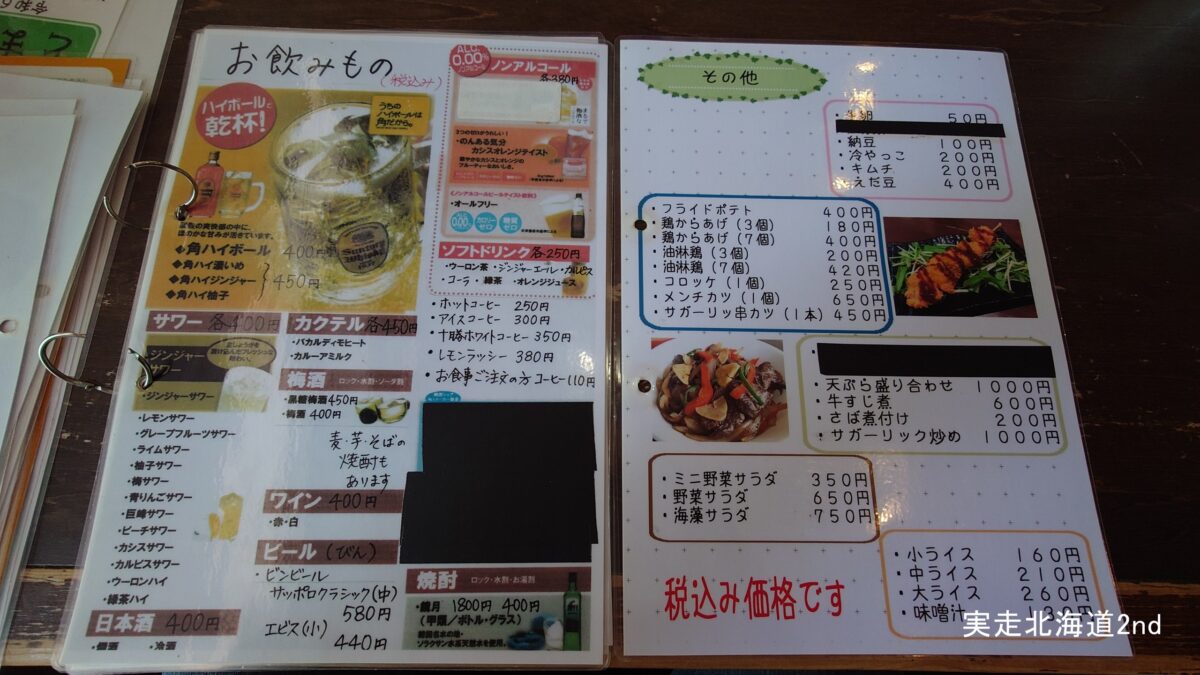 お飲みもの
(税込み)
ハイボールで
乾杯!
うちの
ハイボールは
角だから。
◆角ハイボール 400円
◆角ハイ濃いめ
◆角ハイジンジャー
◆角ハイ柚子
450円
サワー 各400円
ジンジャー
サワー
・ジンジャーサワー
・レモンサワー
・グレープフルーツサワー
・ライムサワー
・柚子サワー
・梅サワー
・青りんごサワー
・巨峰サワー
・ピーチサワー
・カシスサワー
・カルピスサワー
・ウーロンハイ
・緑茶ハイ
日本酒 400円
・燗酒 ・冷酒
カクテル 各450円
・バカルディモヒート
・カルーアミルク
梅酒 ロック・水割・ソーダ割
・黒糖梅酒 450円
・梅酒 400円
麦・芋・そばの
焼酎も
あります
ワイン 400円
・赤・白
ビール (びん)
・ビンビール
サッポロクラシック(中)
580円
エビス(小)
440円
ALC.
0.00%
ノンアルコール
各380円
・のんある気分
カシスオレンジテイスト
〈ノンアルコールビールテイスト飲料〉
・オールフリー
ALC.
0.00%
カロリー
ゼロ
糖質
ゼロ
ソフトドリンク 各250円
・ウーロン茶 ・ジンジャーエール ・カルピス
・コーラ ・緑茶 ・オレンジジュース
・ホットコーヒー 250円
・アイスコーヒー 300円
・十勝ホワイトコーヒー 350円
・レモンラッシー 380円
・お食事ご注文の方 コーヒー110円
焼酎 ロック・水割・お湯割
・鏡月 1800円 400円
(甲類/ボトル・グラス)
ソラクサン水系天然水を使用。
その他
50円
・納豆 100円
・冷やっこ 200円
・キムチ 200円
・えだ豆 400円
・フライドポテト 400円
・鶏からあげ(3個) 180円
・鶏からあげ(7個) 400円
・油淋鶏(3個) 200円
・油淋鶏(7個) 420円
・コロッケ(1個) 250円
・メンチカツ(1個) 650円
・サガーリッ串カツ(1本) 450円
・天ぷら盛り合わせ 1000円
・牛すじ煮 600円
・さば煮付け 200円
・サガーリック炒め 1000円
・ミニ野菜サラダ 350円
・野菜サラダ 650円
・海藻サラダ 750円
・小ライス 160円
・中ライス 210円
・大ライス 260円
・味噌汁 130円
税込み価格です
実走北海道2nd